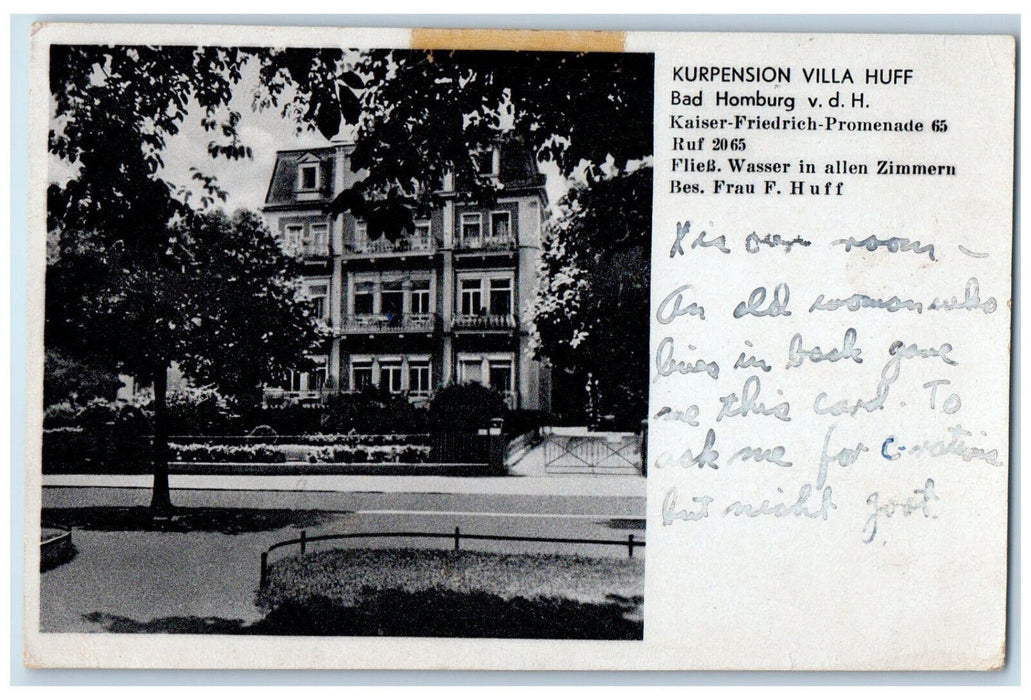 KURPENSION VILLA HUFF
Bad Homburg v. d. H.
Kaiser-Friedrich-Promenade 65
Ruf 2065
Fließ. Wasser in allen Zimmern
Bes. Frau F. Huff
X is our room –
An old woman who
lives in back gave
me this card. To
ask me for C-rations
but nicht goot